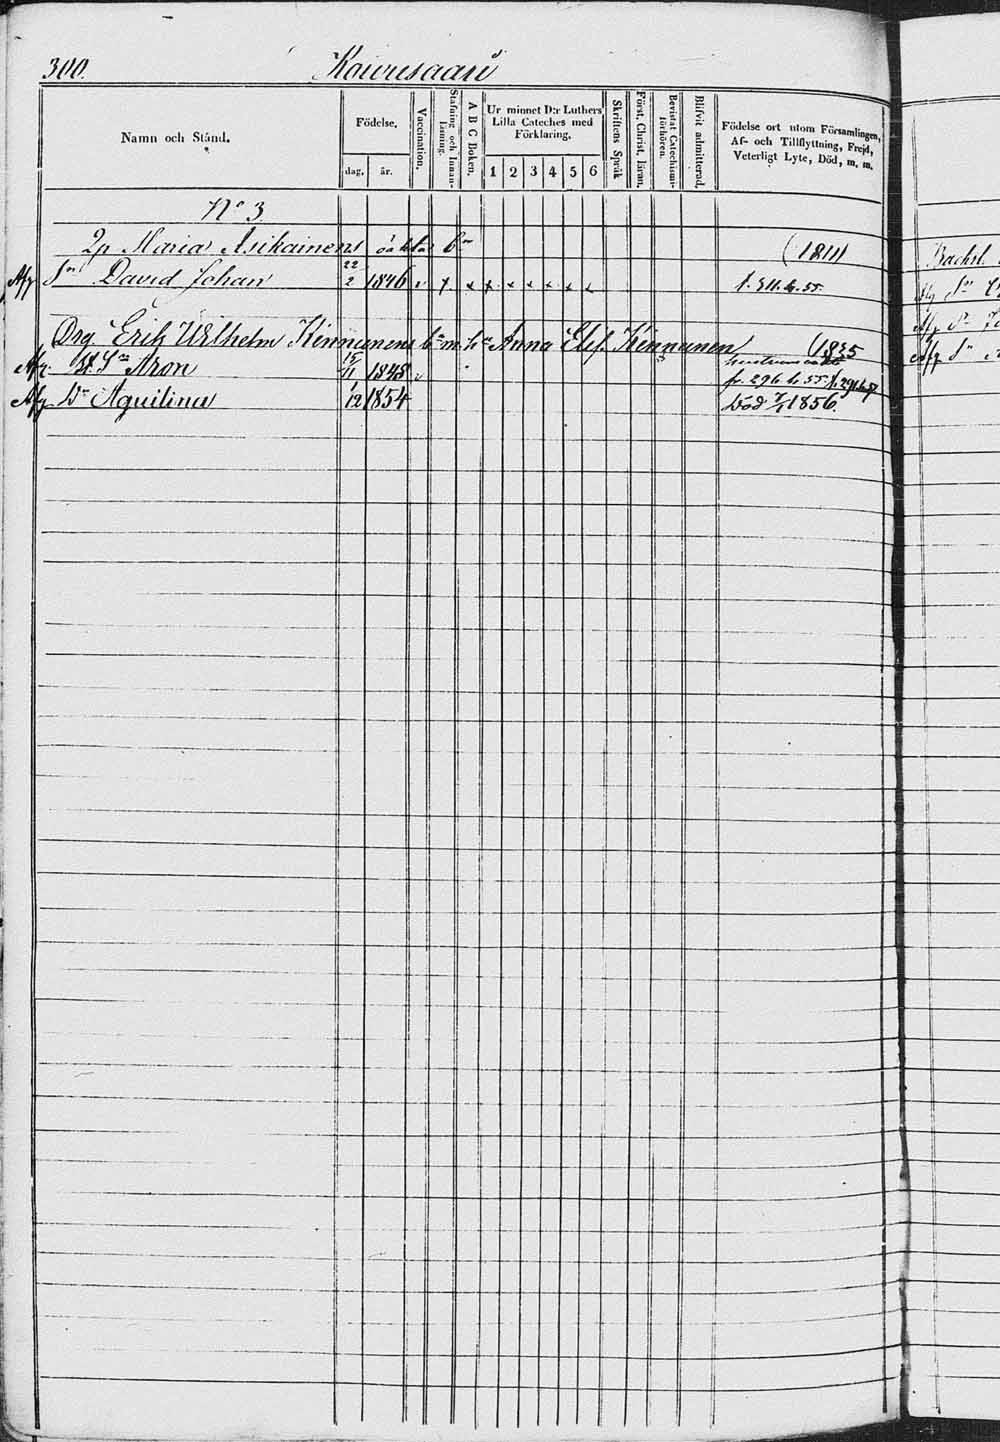 300. Koivusaari
Namn och Stånd.
Födelse.
dag. år.
Vaccination.
Stafning och Innan-läsning.
A B C Boken.
Ur minnet D:r Luthers
Lilla Cateches med
Förklaring.
1 2 3 4 5 6
Skriftens Språk
Först. Christ. läran.
Bevistat Catechismi-förhören.
Blifvit admitterad.
Födelse ort utom Församlingen,
Af- och Tillflyttning, Frejd,
Veterligt Lyte, Död, m. m.
No 3
Maria Asikainens oäkta bn (1811)
Afg Sn David Johan 22/2 1846 v x x x x x x x x f. 311. 55
Drg Erik Wilhelm Kinnunens bn m. h. Anna Elis. Kinnunen (1835
Afg. Sn Aron 15/11 1848 v fr. 296. 55.
Afg. Dr Aquilina 1/12 1854 Död 1856.